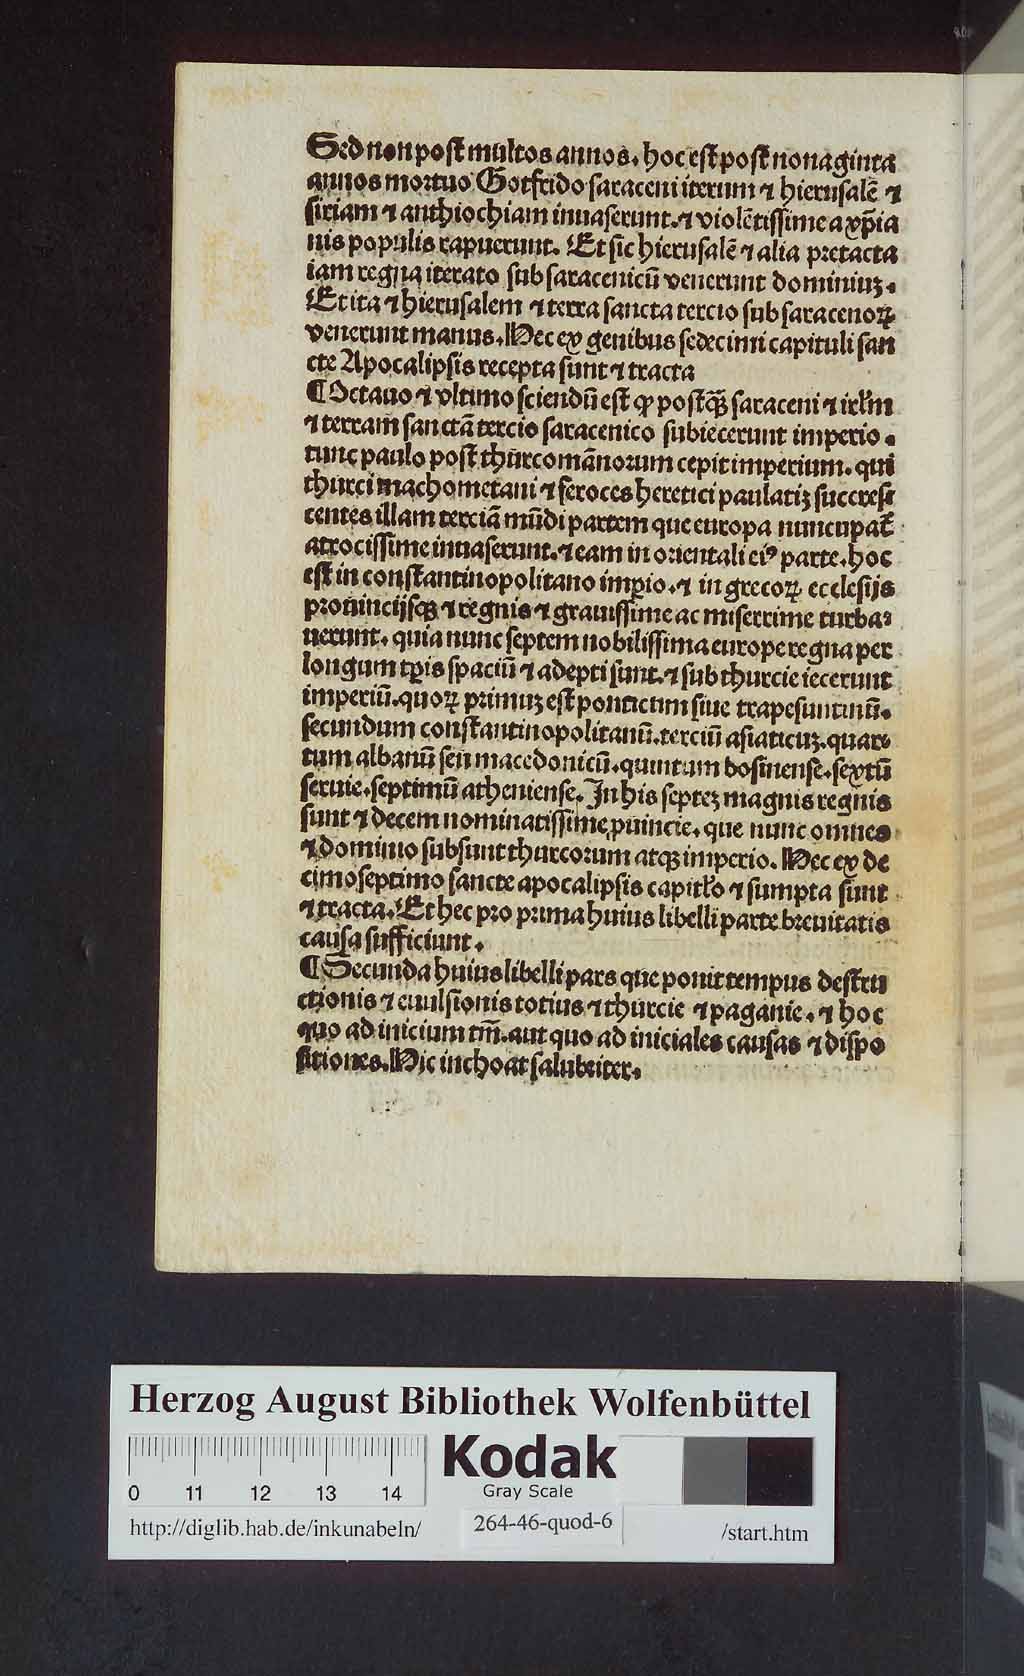 Sed non post multos annos. hoc est post nonaginta
annos mortuo Gotfrido saraceni iterum ⁊ hierusalē ⁊
siriam ⁊ anthiochiam inuaserunt. ⁊ violētissime a xp̄ia
nis populis rapuerunt. Et sic hierusalē ⁊ alia pretacta
iam regna iterato sub saracenicū venerunt dominiuꝫ.
Et ita ⁊ hierusalem ⁊ terra sancta tercio sub saracenoꝝ
venerunt manus. Hec ex genibus sedecimi capituli san
cte Apocalipsis recepta sunt ⁊ tracta
¶ Octauo ⁊ vltimo sciendū est ꝙ postꝙ̄ saraceni ⁊ irlm̄
⁊ terram sanctā tercio saracenico subiecerunt imperio.
tunc paulo post thurcomānorum cepit imperium. qui
thurci machometani ⁊ feroces heretici paulatiꝫ succres
centes illam terciā mūdi partem que europa nuncupat᷑
atrocissime inuaserunt. ⁊ eam in orientali eiꝰ parte. hoc
est in constantinopolitano imꝑio. ⁊ in grecoꝝ ecclesijs
prouincijsqꝫ ⁊ regnis ⁊ grauissime ac miserrime turba⸗
uerunt. quia nunc septem nobilissima europe regna per
longum tꝑis spaciū ⁊ adepti sunt. ⁊ sub thurcie iecerunt
imperiū. quoꝝ primuꝫ est ponticum siue trapesuntinū.
secundum constantinopolitanū. terciū asiaticuꝫ. quar⸗
tum albanū seu macedonicū. quintum bosinense. sextū
seruie. septimū atheniense. In his septeꝫ magnis regnis
sunt ⁊ decem nominatissime ꝓuincie. que nunc omnes
⁊ dominio subsunt thurcorum atqꝫ imperio. Hec ex de
cimoseptimo sancte apocalipsis capitl̓o ⁊ sumpta sunt
⁊ tracta. Et hec pro prima huius libelli parte breuitatis
causa sufficiunt.
¶ Secunda huius libelli pars que ponit tempus destru
ctionis ⁊ euulsionis totius ⁊ thurcie ⁊ paganie. ⁊ hoc
quo ad inicium tm̄. aut quo ad iniciales causas ⁊ dispo
sitiones. Hic inchoat salubriter.
Herzog August Bibliothek Wolfenbüttel
0 11 12 13 14
Kodak
Gray Scale
http://diglib.hab.de/inkunabeln/
264-46-quod-6
/start.htm